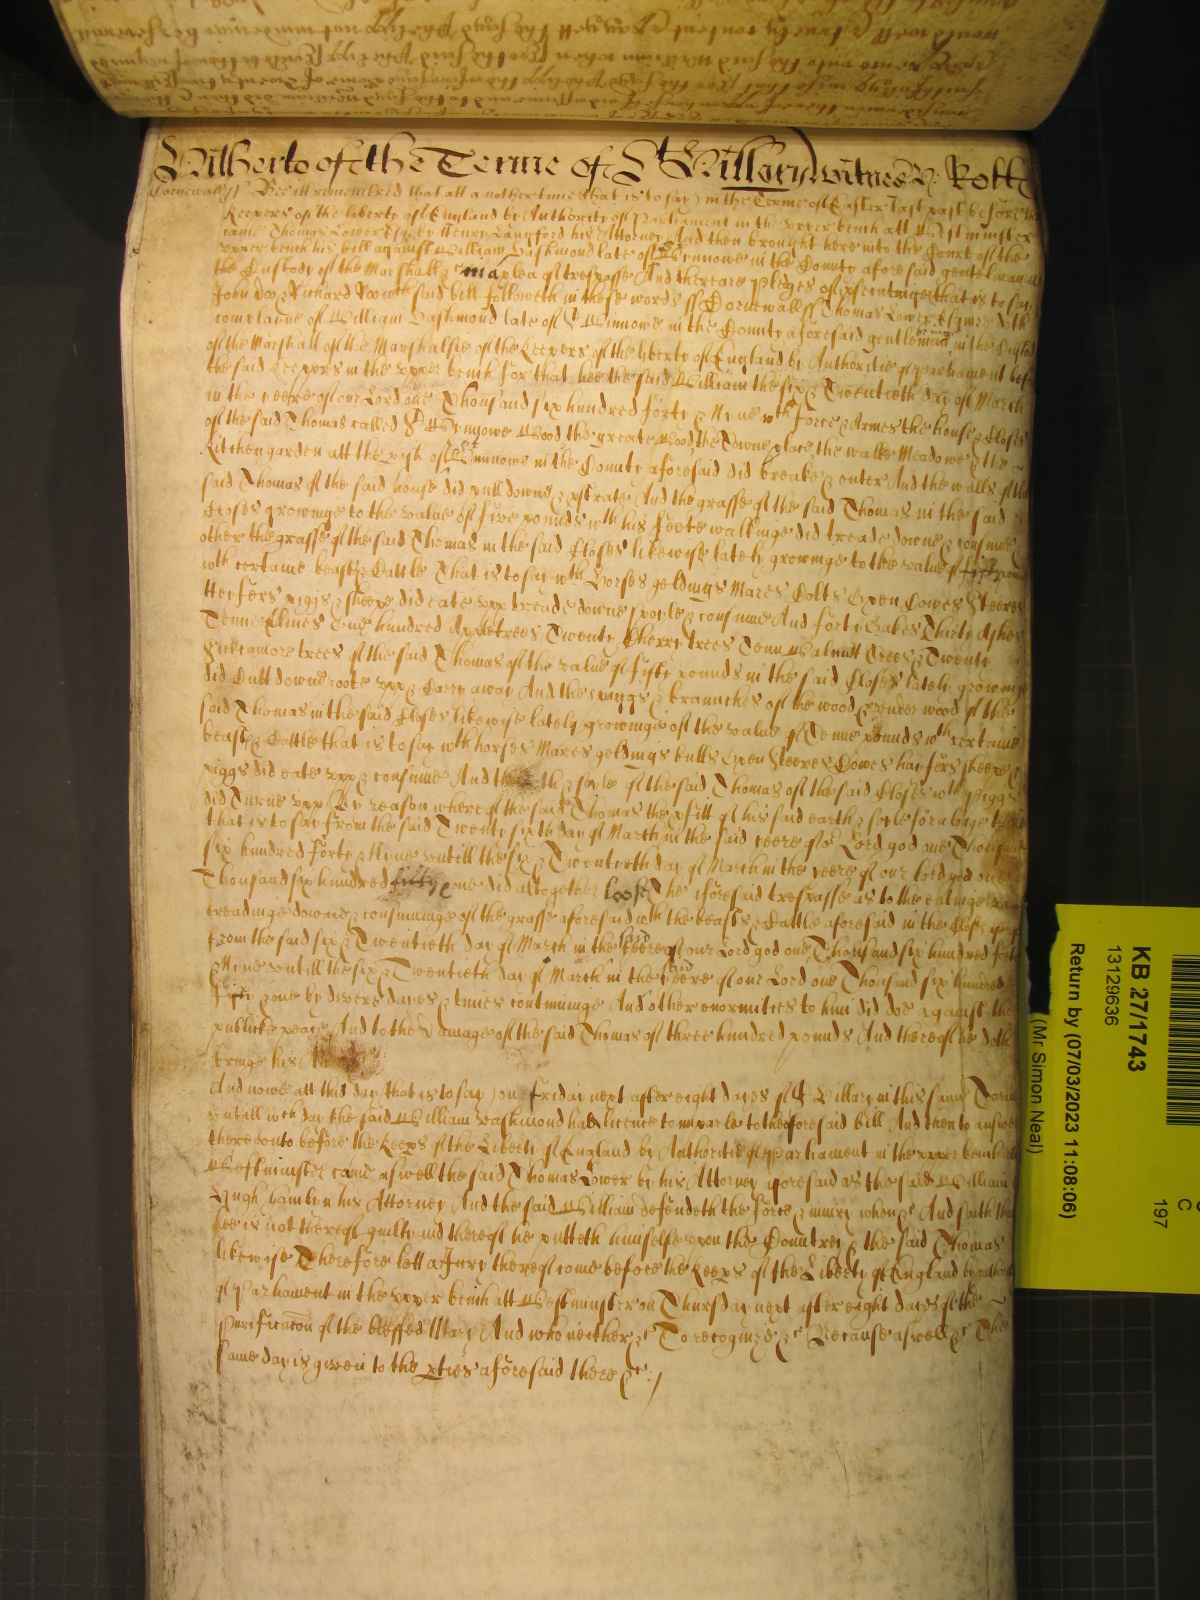 Hitherto of the Terme of St Hillary witnes H: Rolle
Cornewall ss Bee itt remembred that att a nother time (that is to say) in the Terme of Easter last past before the
Keepers of the liberty of England by Authority of Parliament in the vpper bench att Westminster
came Thomas Lower Esqr by Henry Langford his Attorney And then brought here into the Court of the
vpper bench his bill against William Vashmond late of St Winnowe in the County aforesaid gentleman in
the Custody of the Marshall &c in a plea of trespasse And there are pledges of psecutinge that is to say
John Doo & Richard Roo wch said bill followeth in these words ss Cornewall ss Thomas Lower Esquire doth
complaine of William Vashmond late of St Winnowe in the County aforesaid gentleman being in the Custody
of the Marshall of the Marshalsie of the Keepers of the liberty of England by Authoritie of Parliament before
the said Keepers in the vpper bench for that hee the said William the six & Twentieth day of March
in the yeere of our Lord one Thousand six hundred forty & Nyne wth force & Armes the house & Closes
of the said Thomas called St Wynnowe Wood the greate Wood, the Towne place, the walke Meadowe & the
Kitchen garden att the pish of St Winnowe in the County aforesaid did breake & enter And the walls of the
said Thomas of the said house did pull downe & pstrate And the grasse of the said Thomas in the said
Closes growinge to the value of five pounds wth his foote walkinge did treade downe & consume
other the grasse of the said Thomas in the said Closes likewise lately growinge to the value of forty pounds
wth certaine beasts & Cattle That is to say wth Horses geldings Mares Colts Oxen Cowes Steeres
Heifers piggs & sheepe did eate vpp treade downe spoyle & consume And forty Oakes Thirty Ashes
Tenne Elmes One hundred Apletrees Twenty Cherry trees Tenn Walnutt Trees & Twenty
Sickamore trees of the said Thomas of the value of fifty pounds in the said Closes lately growinge
did Cutt downe roote vpp & Carry away And the spriggs & braunches of the wood & vnder wood of the
said Thomas in the said Closes likewise lately growinge of the value of Tenne pounds wth certaine
beasts & Cattle that is to say wth horses Mares geldings bulls Oxen Steeres Cowes hayfers sheepe &
piggs did eate vpp & consume And the earth & soyle of the said Thomas of the said Closes wth Piggs
did Turne vpp By reason whereof the said Thomas the pfitt of his said earth & soyle for a longe tyme
that is to say from the said Twenty sixth day of March in the said yeere of or Lord god one Thousand
six hundred forty & Nyne vntill the six & Twentieth day of March in the yeere of our lord god one
Thousand six hundred fifty & one did altogether loose The aforesaid trespasse as to the eatinge vpp
treadinge downe & consuminge of the grasse aforesaid wth the beasts & Cattle aforesaid in the Closes aforesaid
from the said six & Twentieth day of March in the said yeere of our Lord god one Thousand six hundred forty
& Nyne vntill the six & Twentieth day of March in the said yeere of our Lord one Thousand six hundred
fifty & one by divers dayes & times continuinge And other enormities to him did doe against the
publike peace And to the damage of the said Thomas of three hundred pounds And thereof he doth
bringe his
And nowe att this day that is to say on friday next after eight dayes of St Hillary in this same Terme
vntill wch day the said William Vashmond had licence to imparle to the aforesaid bill And then to answere
there vnto before the Keeps of the Liberty of England by Authoritie of Parliament in the vpper bench att
Westminster came aswell the said Thomas Lower by his Attorney aforesaid as the said William by
Hugh Hamlyn his Attorney And the said William defendeth the force & iniury when &c And saith that
hee is not thereof guilty and thereof he putteth himselfe vpon the Countrey & the said Thomas
likewise Therefore lett a Jury thereof come before the Keeps of the Liberty of England by authority
of Parliament in the vpper bench att Westminster on Thursday next after eight dayes of the
purificacon of the blessed Mary And who neither &c To recognize &c Because aswell &c The
same day is given to the pties aforesaid there &c
KB 27/1743
13129636
Return by (07/03/2023 11:08:06)
(Mr Simon Neal)
C
197